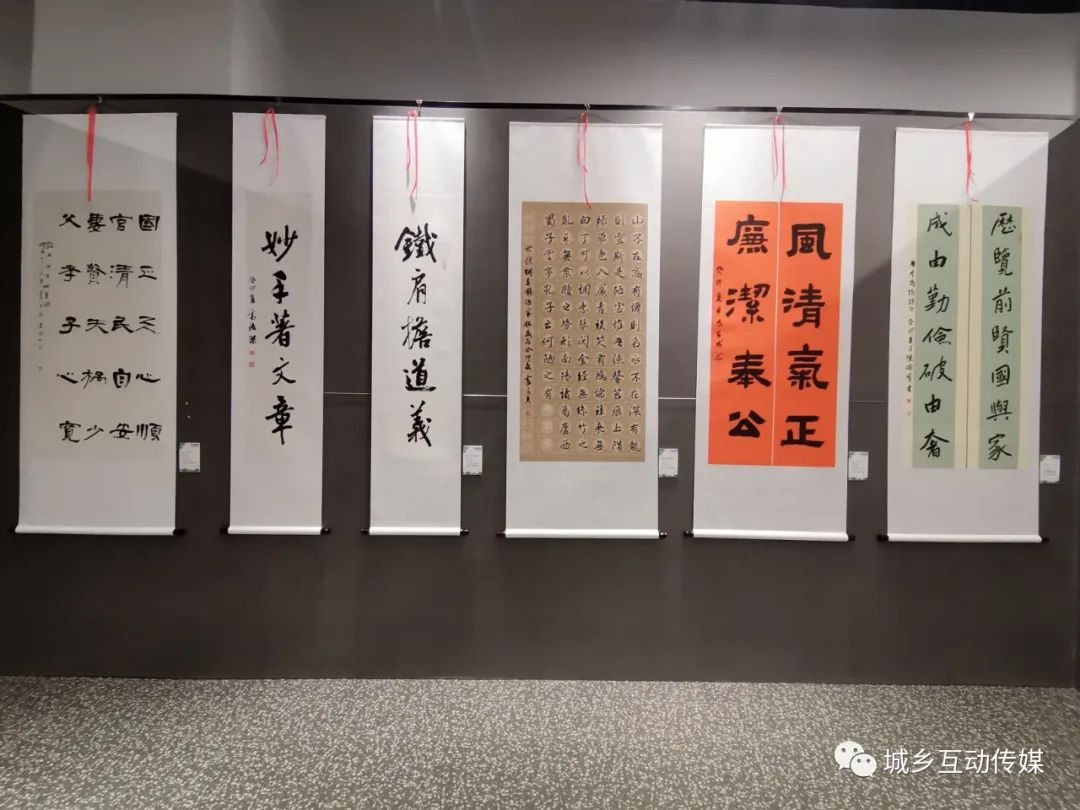 歷覽前賢國與家
成由勤儉破由奢
風清氣正
廉潔奉公
山不在高有僊則名水不在深有龍
則靈斯是陋室惟吾德馨苔痕上階
綠草色入簾青談笑有鴻儒往來無
白丁可以調素琴閱金經無絲竹之
亂耳無案牘之勞形南陽諸葛廬西
蜀子雲亭孔子云何陋之有
鐵肩擔道義
妙手著文章
癸卯夏
國正天心順
官清民自安
妻賢夫禍少
父孝子心寬
城乡互动传媒